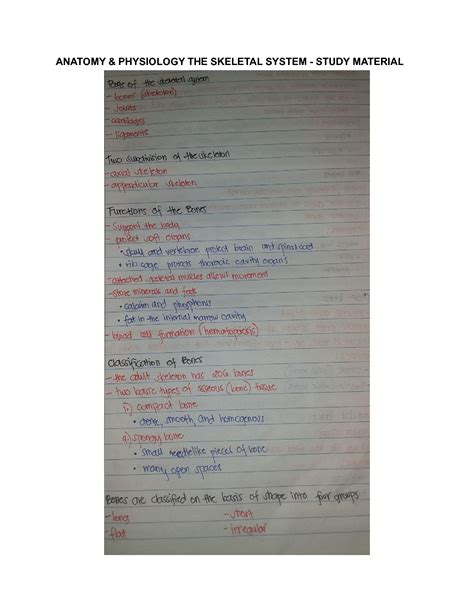 ANATOMY & PHYSIOLOGY THE SKELETAL SYSTEM - STUDY MATERIAL
Parts of the skeletal system
- bones (skeleton)
- Joints
- cartilages
- ligaments
Two subdivision of the skeleton
- axial skeleton
- appendicular skeleton
Functions of the Bones
- Support the body
- protect soft organs
• skull and vertebrae protect brain and spinal cord
• rib cage protects thoracic cavity organs
- attached skeletal muscles allows movement
- store minerals and fats
• calcium and phosphorus
• fat in the internal marrow cavity
- blood cell formation (hematopoiesis)
Classification of Bones
- the adult skeleton has 206 bones
- two basic types of osseous (bone) tissue
1) compact bone
• dense, smooth, and homogenous
2) spongy bone
• small needlelike pieces of bone
• many open spaces
Bones are classified on the basis of shape into four groups
- long - short
- flat - irregular